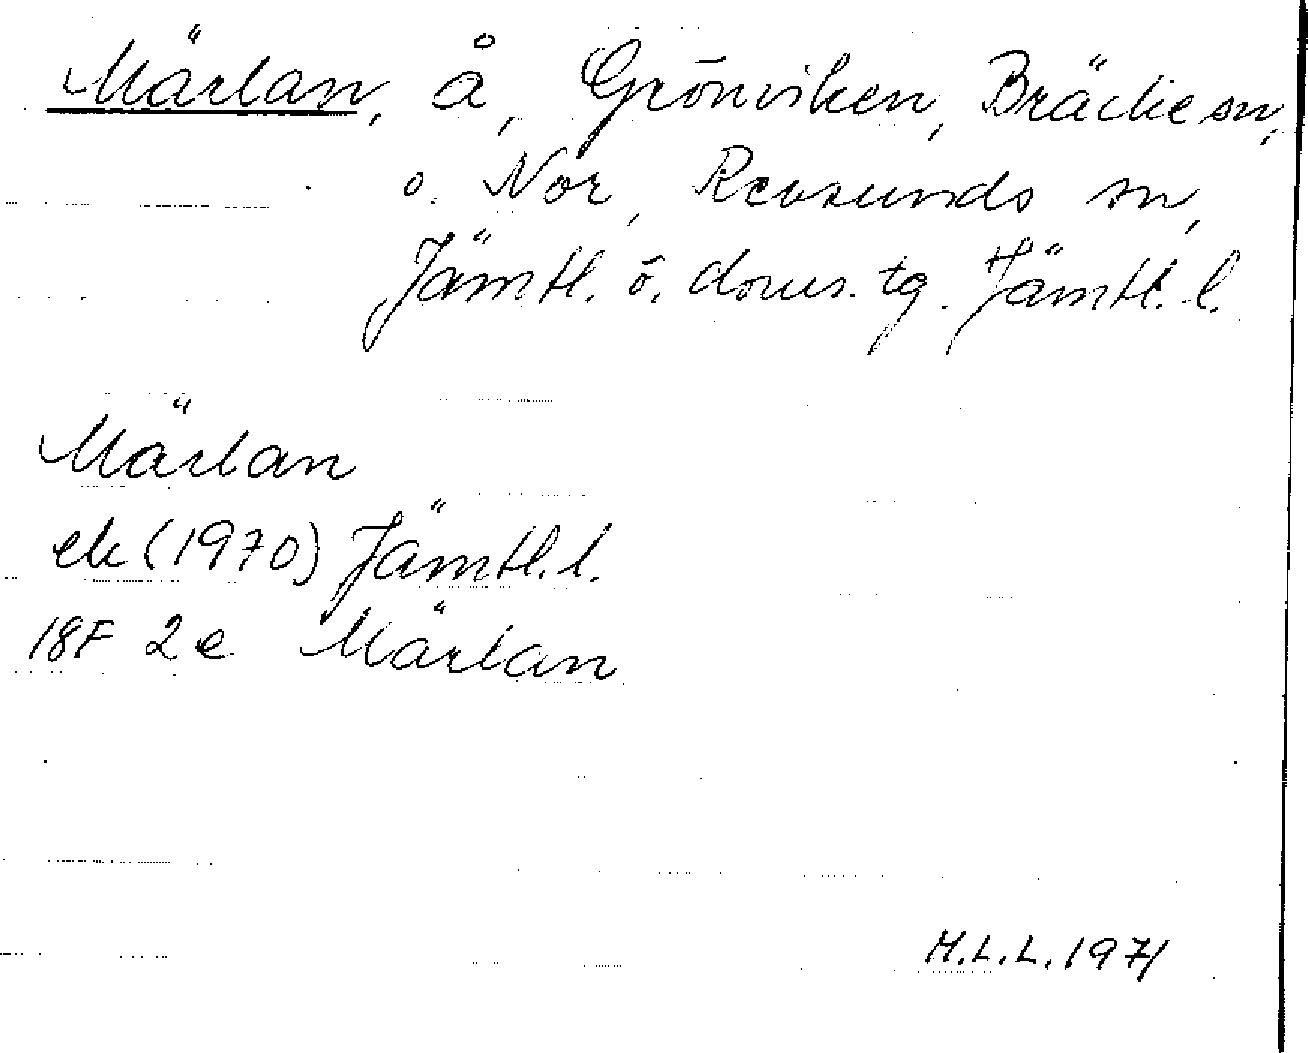 Märlan, å, Grönviken, Bräcke sn,
o. Nor, Revsunds sn,
Jämtl. ö. doms. tg. Jämtl. l.
Märlan
ek (1970) Jämtl. l.
18F 2e Märlan
H.L.L. 1971